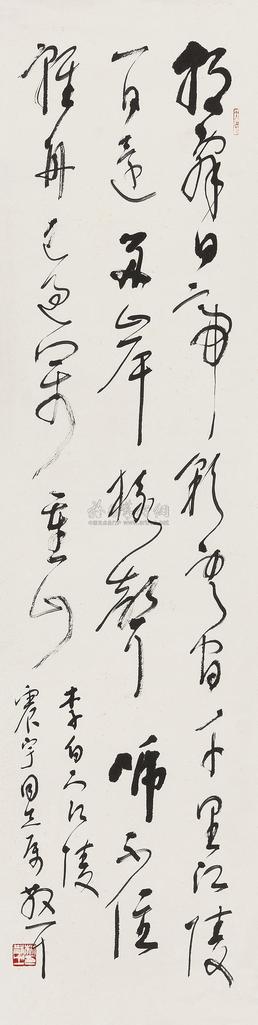 朝辞白帝彩云间千里江陵
一日还两岸猿声啼不住
轻舟已过万重山
李白下江陵
震宇同志属 散之